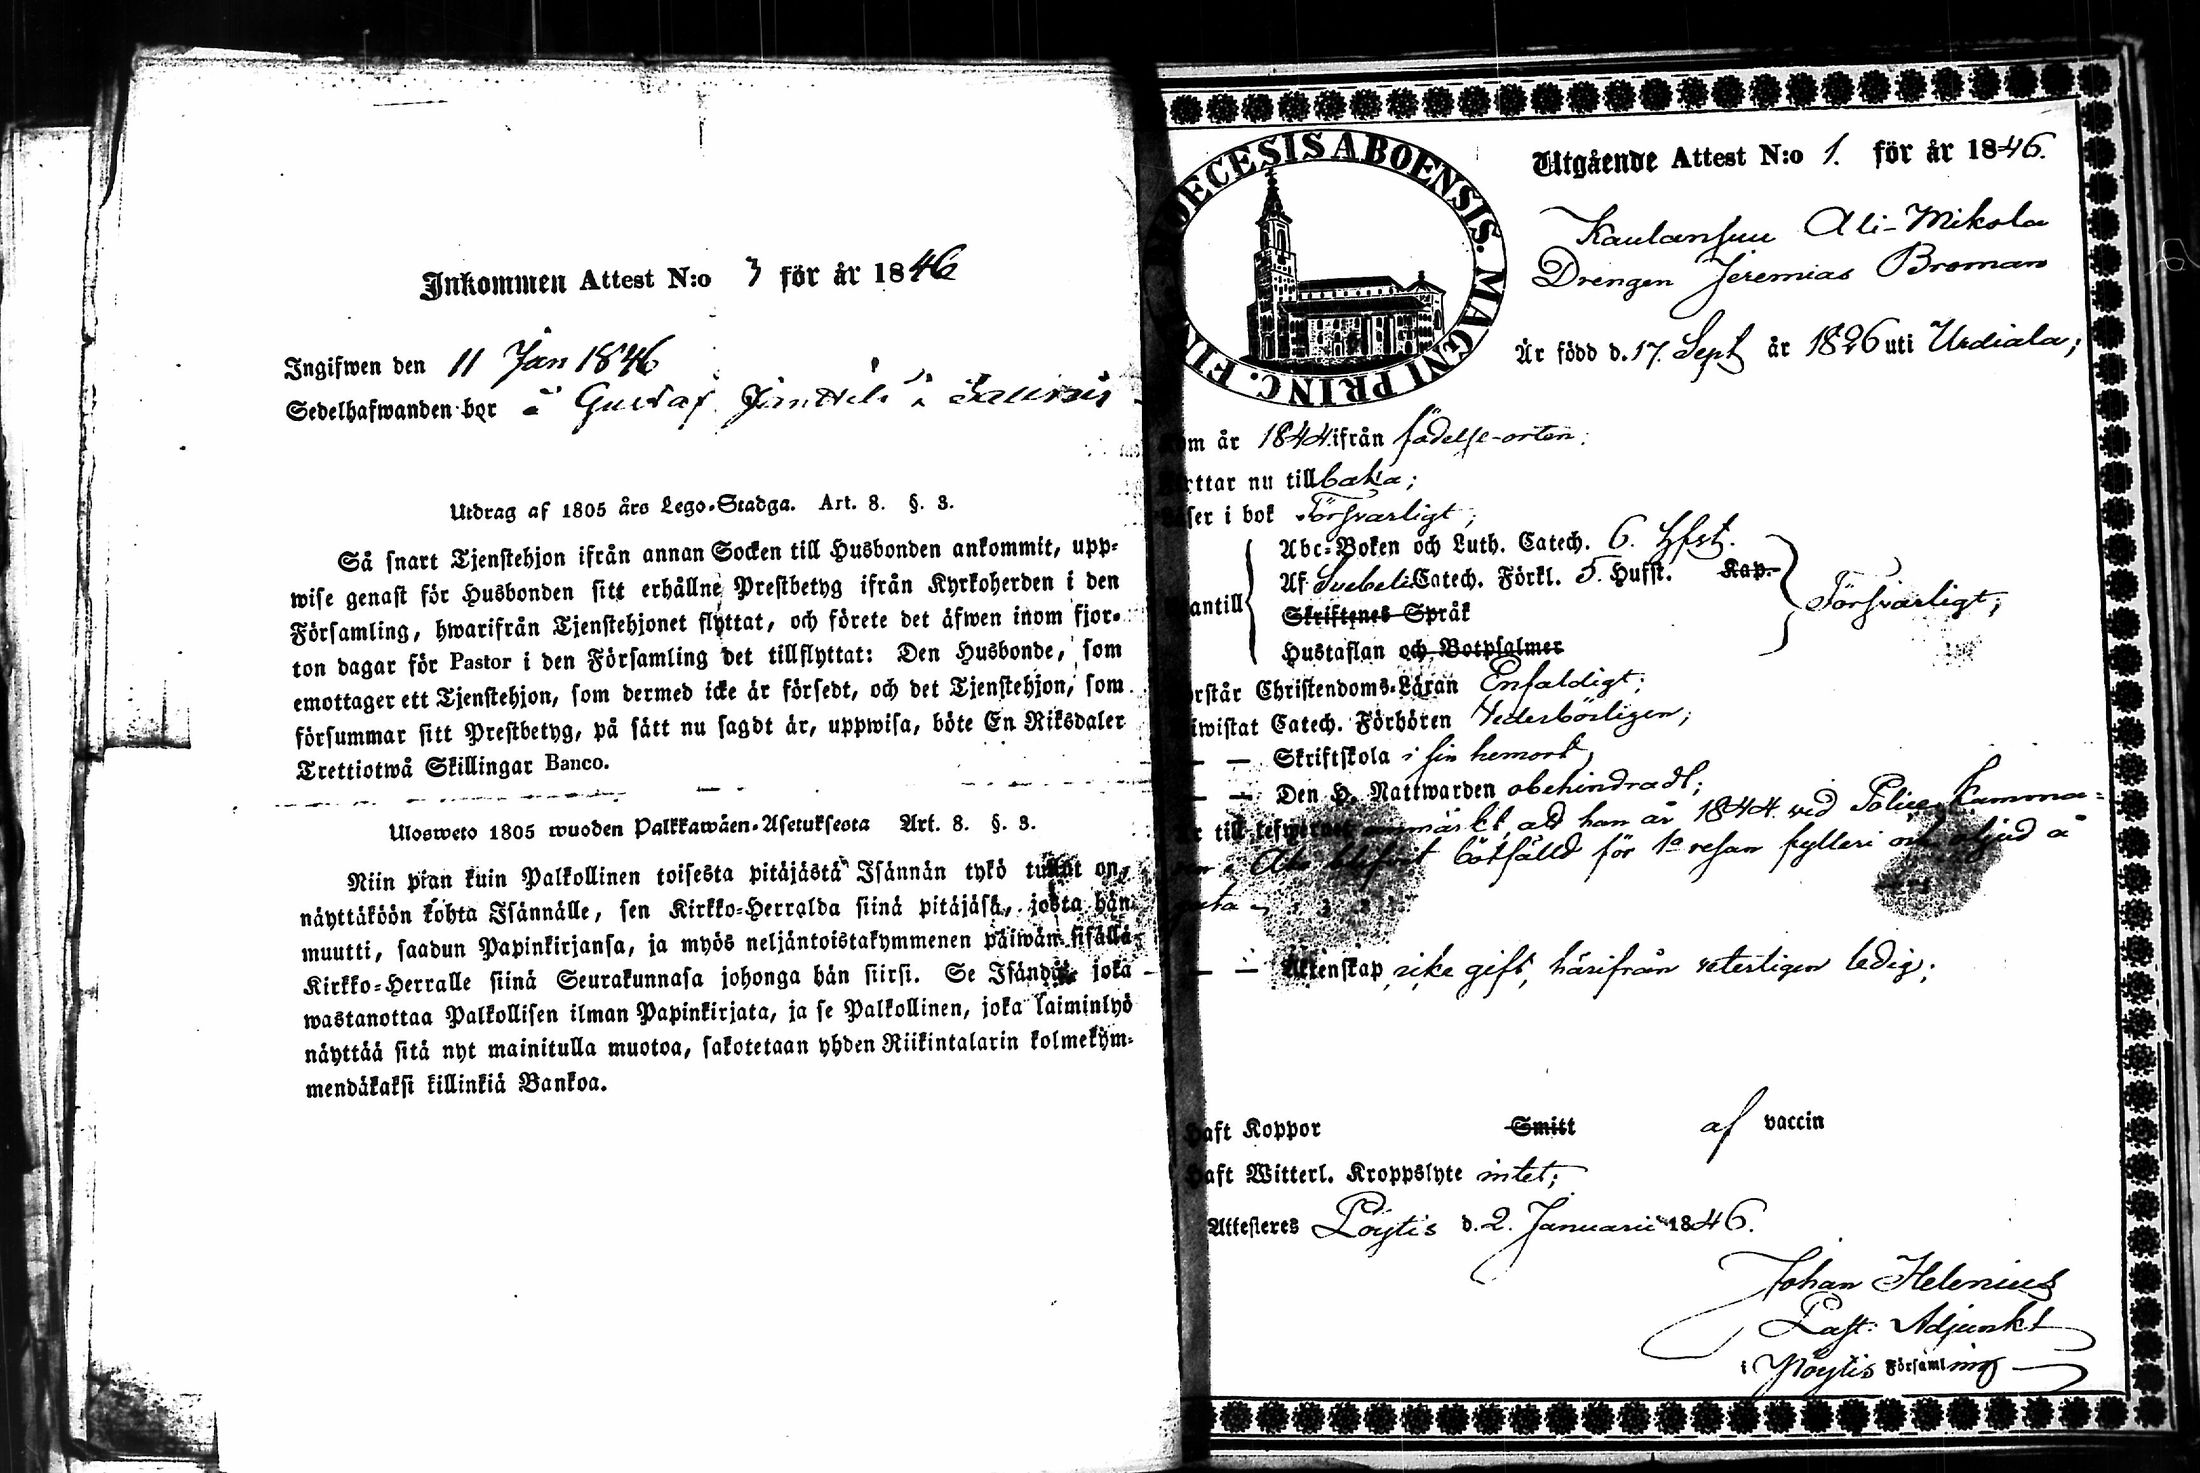 Inkommen Attest N:o 3 för år 1846
Ingifwen den 11 Jan 1846
Sedelhafwanden bor å Gustaf
Utdrag af 1805 års Lego-Stadga. Art. 8. §. 3.
Så snart Tjenstehjon ifrån annan Socken till Husbonden ankommit, upp-
wise genast för Husbonden sitt erhållne Prestbetyg ifrån Kyrkoherden i den
Församling, hwarifrån Tjenstehjonet flyttat, och förete det äfwen inom fjor-
ton dagar för Pastor i den Församling det tillflyttat: Den Husbonde, som
emottager ett Tjenstehjon, som dermed icke är försedt, och det Tjenstehjon, som
försummar sitt Prestbetyg, på sätt nu sagdt är, uppwisa, böte En Riksdaler
Trettiotwå Skillingar Banco.
Ulosweto 1805 wuoden Palkkawäen-Asetuksesta Art. 8. §. 3.
Niin pian kuin Palkollinen toisesta pitäjästä Isännän tykö tullut on,
näyttäköön kohta Isännälle, sen Kirkko-Herralda siinä pitäjäsä, josta hän
muutti, saadun Papinkirjansa, ja myös neljäntoistakymmenen päiwän sisällä
Kirkko-Herralle siinä Seurakunnasa johonga hän siirsi. Se Isändä, joka
wastanottaa Palkollisen ilman Papinkirjata, ja se Palkollinen, joka laiminlyö
näyttää sitä nyt mainitulla muotoa, sakotetaan yhden Riikintalarin kolmekym-
mendäkaksi killinkiä Bankoa.
DIOECESIS ABOENSIS. MAGNI PRINC. FIN
Utgående Attest N:o 1. för år 1846.
Kaulansuu Ali-Mikola
Drengen Jeremias Broman
Är född d. 17. Sept år 1826 uti Urdiala;
Kom år 1844. ifrån födelse-orten;
flyttar nu tillbaka;
Läser i bok Försvarligt;
Abc-Boken och Luth. Catech. 6. Hfst.
Af Svebeli Catech. Förkl. 5. Hufst. Kap.
utantill Skriftenes Språk Försvarligt;
Hustaflan och Botpsalmer
förstår Christendoms-Läran Enfaldigt;
Biwistat Catech. Förhören Vederbörligen;
— — Skriftskola i sin hemort
— — Den H. Nattwarden obehindradt;
Är till lefwernet anmärkt, att han år 1844. ved Police Kamma-
ren i Åbo blifvit bötfälld för 1a resan fylleri och oljud å
gata
— — Äktenskap icke gift, härifrån veterligen ledig;
Haft Koppor Smitt af vaccin
Haft Witterl. Kroppslyte intet;
Attesteres Pöytis d. 2. Januarii 1846.
Johan Helenius
Past. Adjunkt
i Pöytis Församling